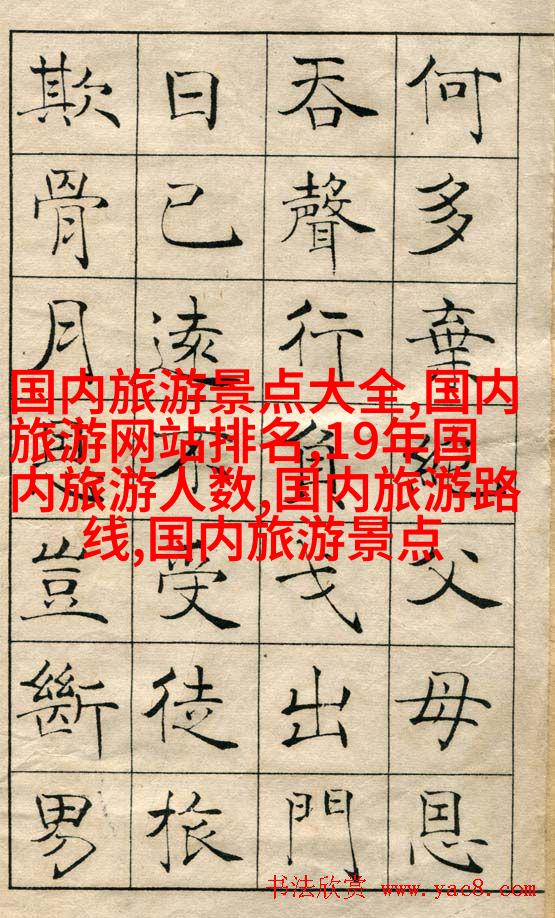 何多棄絕父母恩
吞聲行負戈出門
日已遠不受徒旅
欺骨月恩豈斷男
国内旅游景点大全,国内
旅游网站排名,19年国
内旅游人数,国内旅游路
线,国内旅游景点
书法欣赏 www.yac8.com